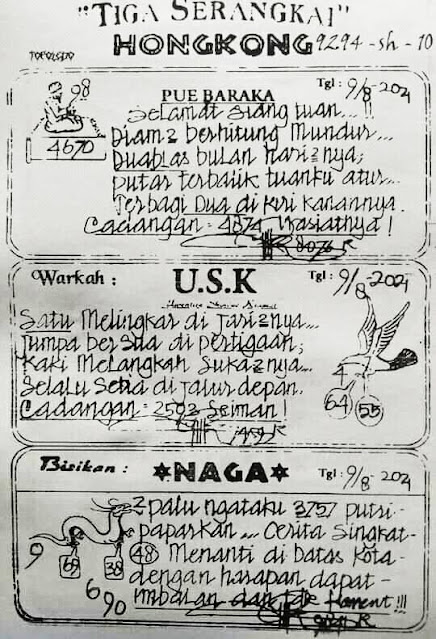 "TIGA SERANGKAI"
HONGKONG 9294-sh-10
TOPOLSDO
98
4670
PUE BARAKA
Tgl: 9/8-2021
Selamat siang tuan...!!
Diam2 berhitung mundur...
Duablas bulan hari2nya;
putar terbalik tuanku atur...
Terbagi Dua di kiri kanannya.
Cadangan: 4874 Wasiatnya!
8076
Warkah:
U.S.K
Tgl: 9/8-2021
Satu Melingkar di Jari2nya...
Jumpa bersua di pertigaan;
Kaki Melangkah suka2nya...
Selalu Setia di Jalur depan.
Cadangan: 2593 Seiman!
4
64
55
Bisikan:
NAGA
Tgl: 9/8-2021
2 palu ngataku 3757 putri-
paparkan... Cerita Singkat-
48 Menanti di batas kota-
dengan harapan dapat-
imbalan dan
!!!
9
69
38
6
90